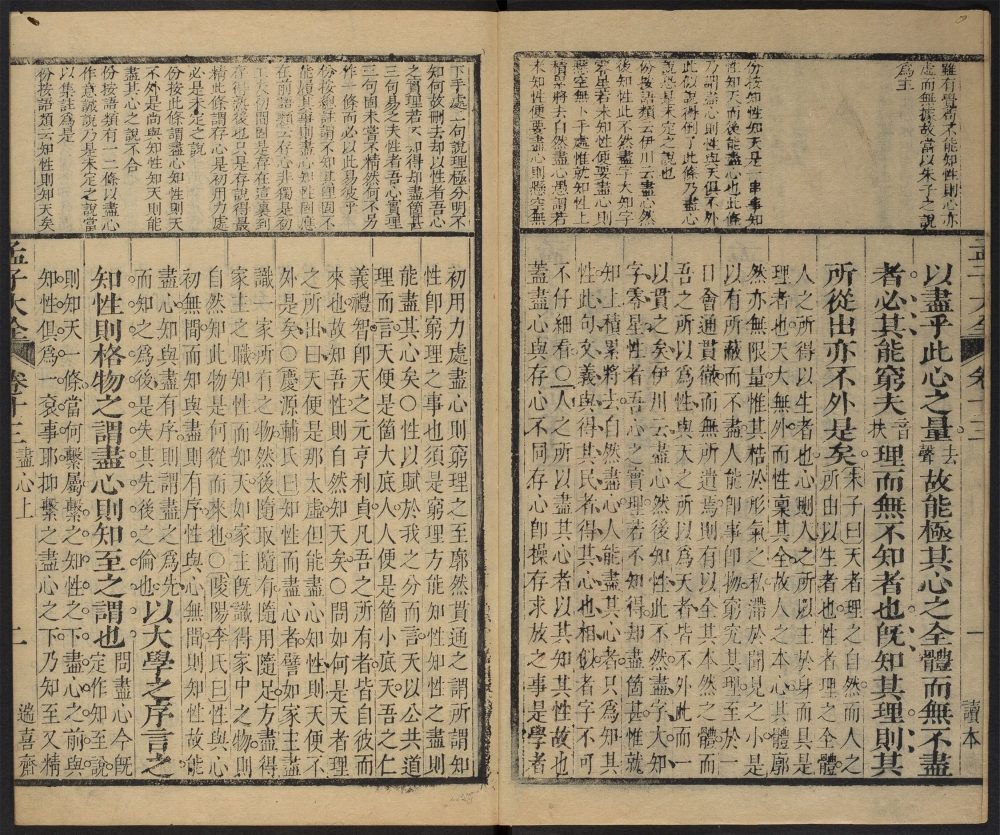 雖有與尚未能知性則心亦
處而無據故當以朱子之說
為主
份按知性知天是一串事知
性知天而後能盡心也此條
乃謂盡心則性與天俱不外
此似說得倒了此條乃盡心
說恐是未定之說
份按語類云伊川云盡心然
後知性此不然盡字大知字
零星若未知性便要盡心則
懸空無下手處惟就知性上
積累將去自然盡心愚謂若
未知性便要盡心則懸空無
以盡乎此心之量去聲故能極其心之全體而無不盡
者必其能窮夫音扶理而無不知者也既知其理則其
所從出亦不外是矣朱子曰天者理之自然而人之
所由以生者也性者理之全體
而人之所得以生者也心則人之所以主於身而具是
理者也天大無外而性稟其全故人之本心其體廓
然亦無限量惟其梏於形氣之私滯於聞見之小是
以有所蔽而不盡人能即事即物窮究其理至於一
日會通貫徹而無所遺焉則有以全其本然之體而
吾之所以為性與天之所以為天者皆不外此而一
以貫之矣伊川云盡心然後知性此不然盡字大知
字零星性者吾心之實理若不知得却盡箇甚惟就
知上積累將去自然盡心人能盡其心者只為知其
性此句文義與得其民者得其心也相似者字不可
不仔細看○人之所以盡其心者以其知其性故也
蓋盡心與存心不同存心即操存求放之事是學者
孟子大全 卷十三 一 讀本
下手處二句說理極分明不
知何故刪去却以性者吾心
之實理若不知得却盡箇甚
三句易之夫性者吾心實理
三句固未嘗不精然何不另
作一條而必以此易彼乎
份按總註謂不知其理固不
能履其事則盡心知性固應
在前語類云存心非獨是初
工夫初間固是存在這裏到
存得熟後也只是存說得最
精此條謂存心是初用力處
必是未定之說
份按此條謂盡心知性則天
不外是尚與知性知天則能
盡其心之說不合
份按語類有一二條以盡心
作意誠說乃是未定之說當
以集註為是
份按語類云知性則知天矣
初用力處盡心則窮理之至廓然貫通之謂所謂知
性即窮理之事也須是窮理方能知性知性之盡則
能盡其心矣○性以賦於我之分而言天以公共道
理而言天便是箇大底人人便是箇小底天吾之仁
義禮智即天之元亨利貞凡吾之所有者皆自彼而
來也故知吾性則自然知天矣○問如何是天者理
之所出曰天便是那太虛但能盡心知性則天便不
外是矣○慶源輔氏曰知性而盡心者譬如家主盡
識一家所有之物然後隨取隨有隨用隨足方盡得
家主之職知性而知天如家主既識得家中之物則
自然知此物是何從而來也○陵陽李氏曰性與心
初無間而知與盡則有序性與心無間則知性故能
盡心知與盡有序則謂盡之為先
而知之為後是失其先後之倫也以大學之序言之
知性則格物之謂盡心則知至之謂也問盡心今既
定作知至說
則知天一條當何繫屬繫之知性之下盡心之前與
知性俱為一衮事耶抑繫之盡心之下乃知至又精
孟子大全 卷十三 盡心上 一 遄喜齋